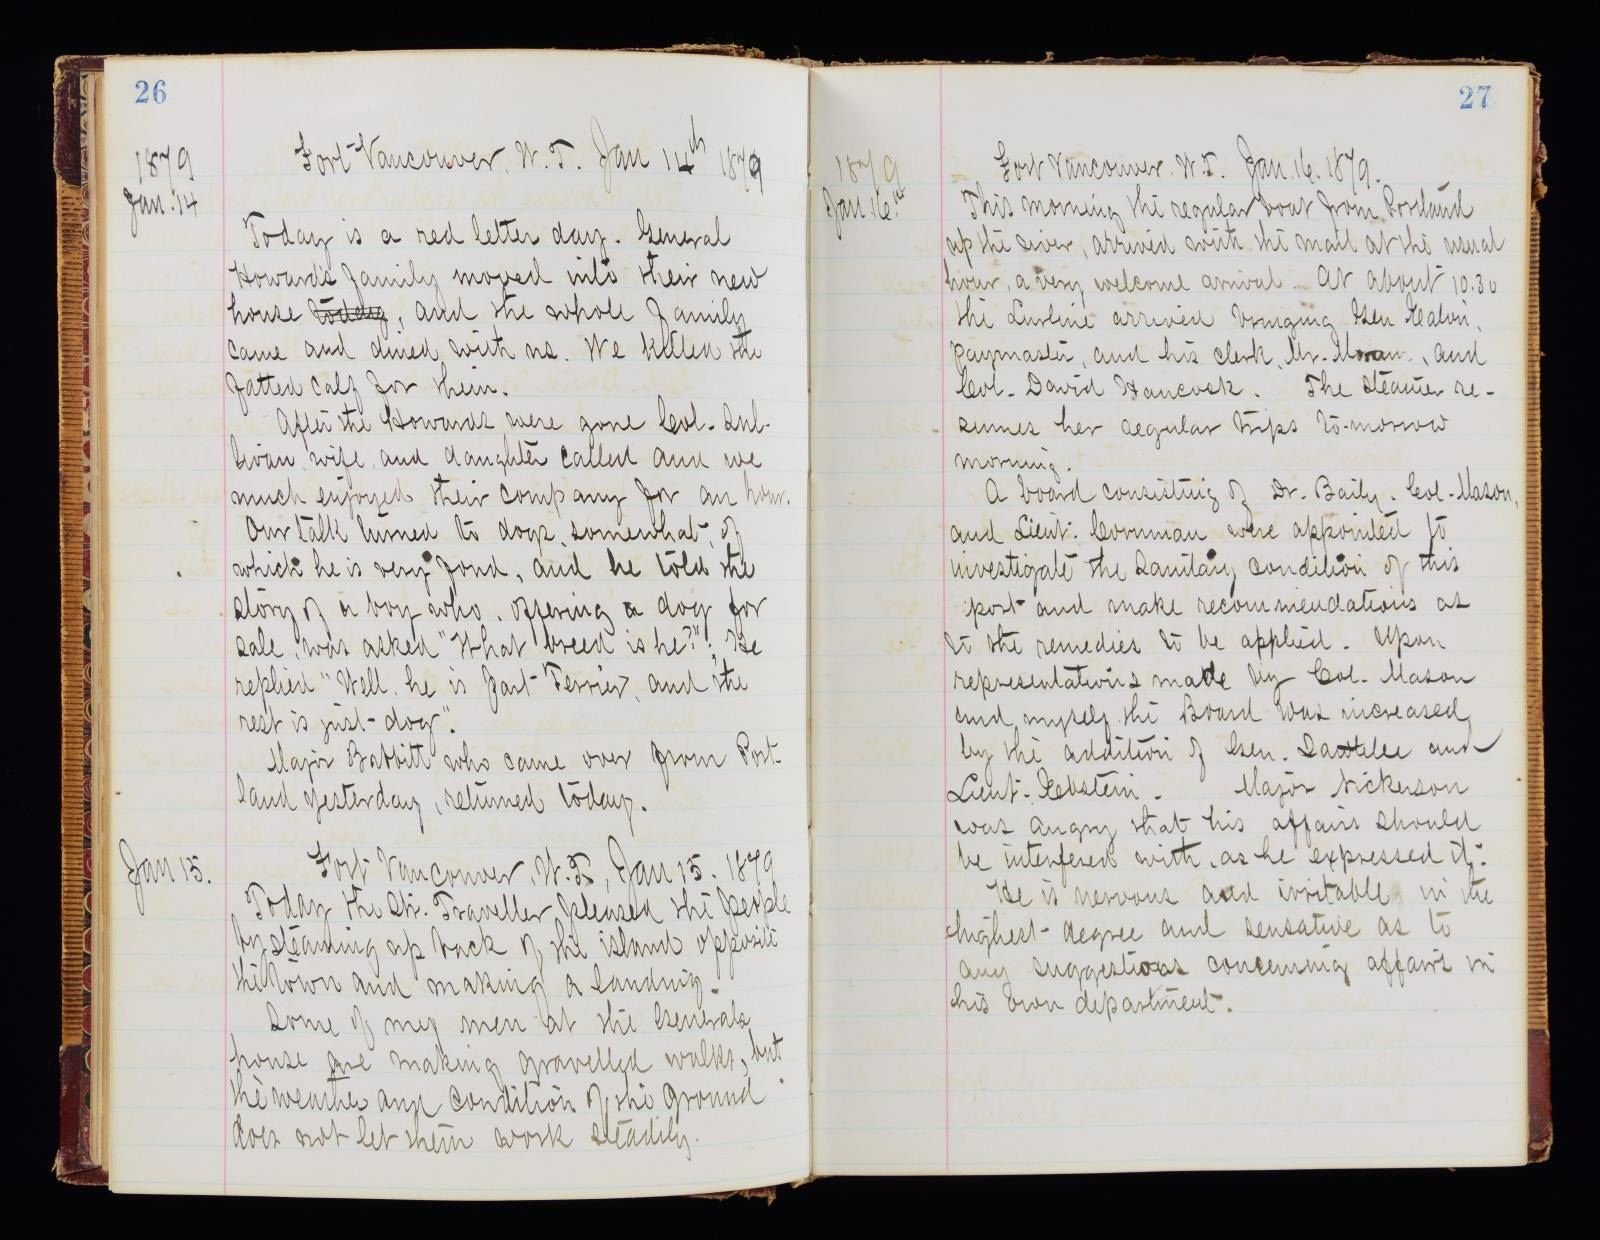 26
1879
Jan. 14
Fort Vancouver, W.T. Jan 14th 1879
Today is a red letter day. General
Howard's family moved into their new
house today, and the whole family
came and dined with us. We killed the
fatted calf for them.
After the Howards were gone Col. Sul-
livan, wife, and daughter called and we
much enjoyed their company for an hour.
Our talk turned to dogs, somewhat, of
which he is very fond, and he told the
story of a boy who, offering a dog for
sale, was asked "What breed is he?" He
replied "Well, he is part Terrier, and the
rest is just dog".
Major Babbitt who came over from Port-
land yesterday, returned today.
Jan 15.
Fort Vancouver, W.T., Jan 15. 1879
Today the Str. Traveller pleased the people
by steaming up back of the island opposite
the town and making a landing.
Some of my men at the Generals
house are making gravelled walks, but
the weather and condition of the ground
does not let them work steadily.
27
1879
Jan 16th
Fort Vancouver. W.T. Jan. 16. 1879.
This morning the regular boat from Portland
up the river, arrived with the mail at the usual
hour, a very welcome arrival. At about 10.30
the Lurline arrived bringing Gen
paymaster, and his clerk, Mr. Moran, and
Col. David Hancock. The steamer re-
sumes her regular trips to-morrow
morning.
A board consisting of Dr. Baily, Col. Mason,
and Lieut. Cornman were appointed to
investigate the Sanitary condition of this
post and make recommendations as
to the remedies to be applied. Upon
representations made by Col. Mason
and myself the Board was increased
by the addition of Gen. Sawtelle and
Lieut. Ebstein. Major Nickerson
was angry that his affairs should
be interfered with, as he expressed it.
He is nervous and irritable in the
highest degree and sensative as to
any suggestions concerning affairs in
his own department.